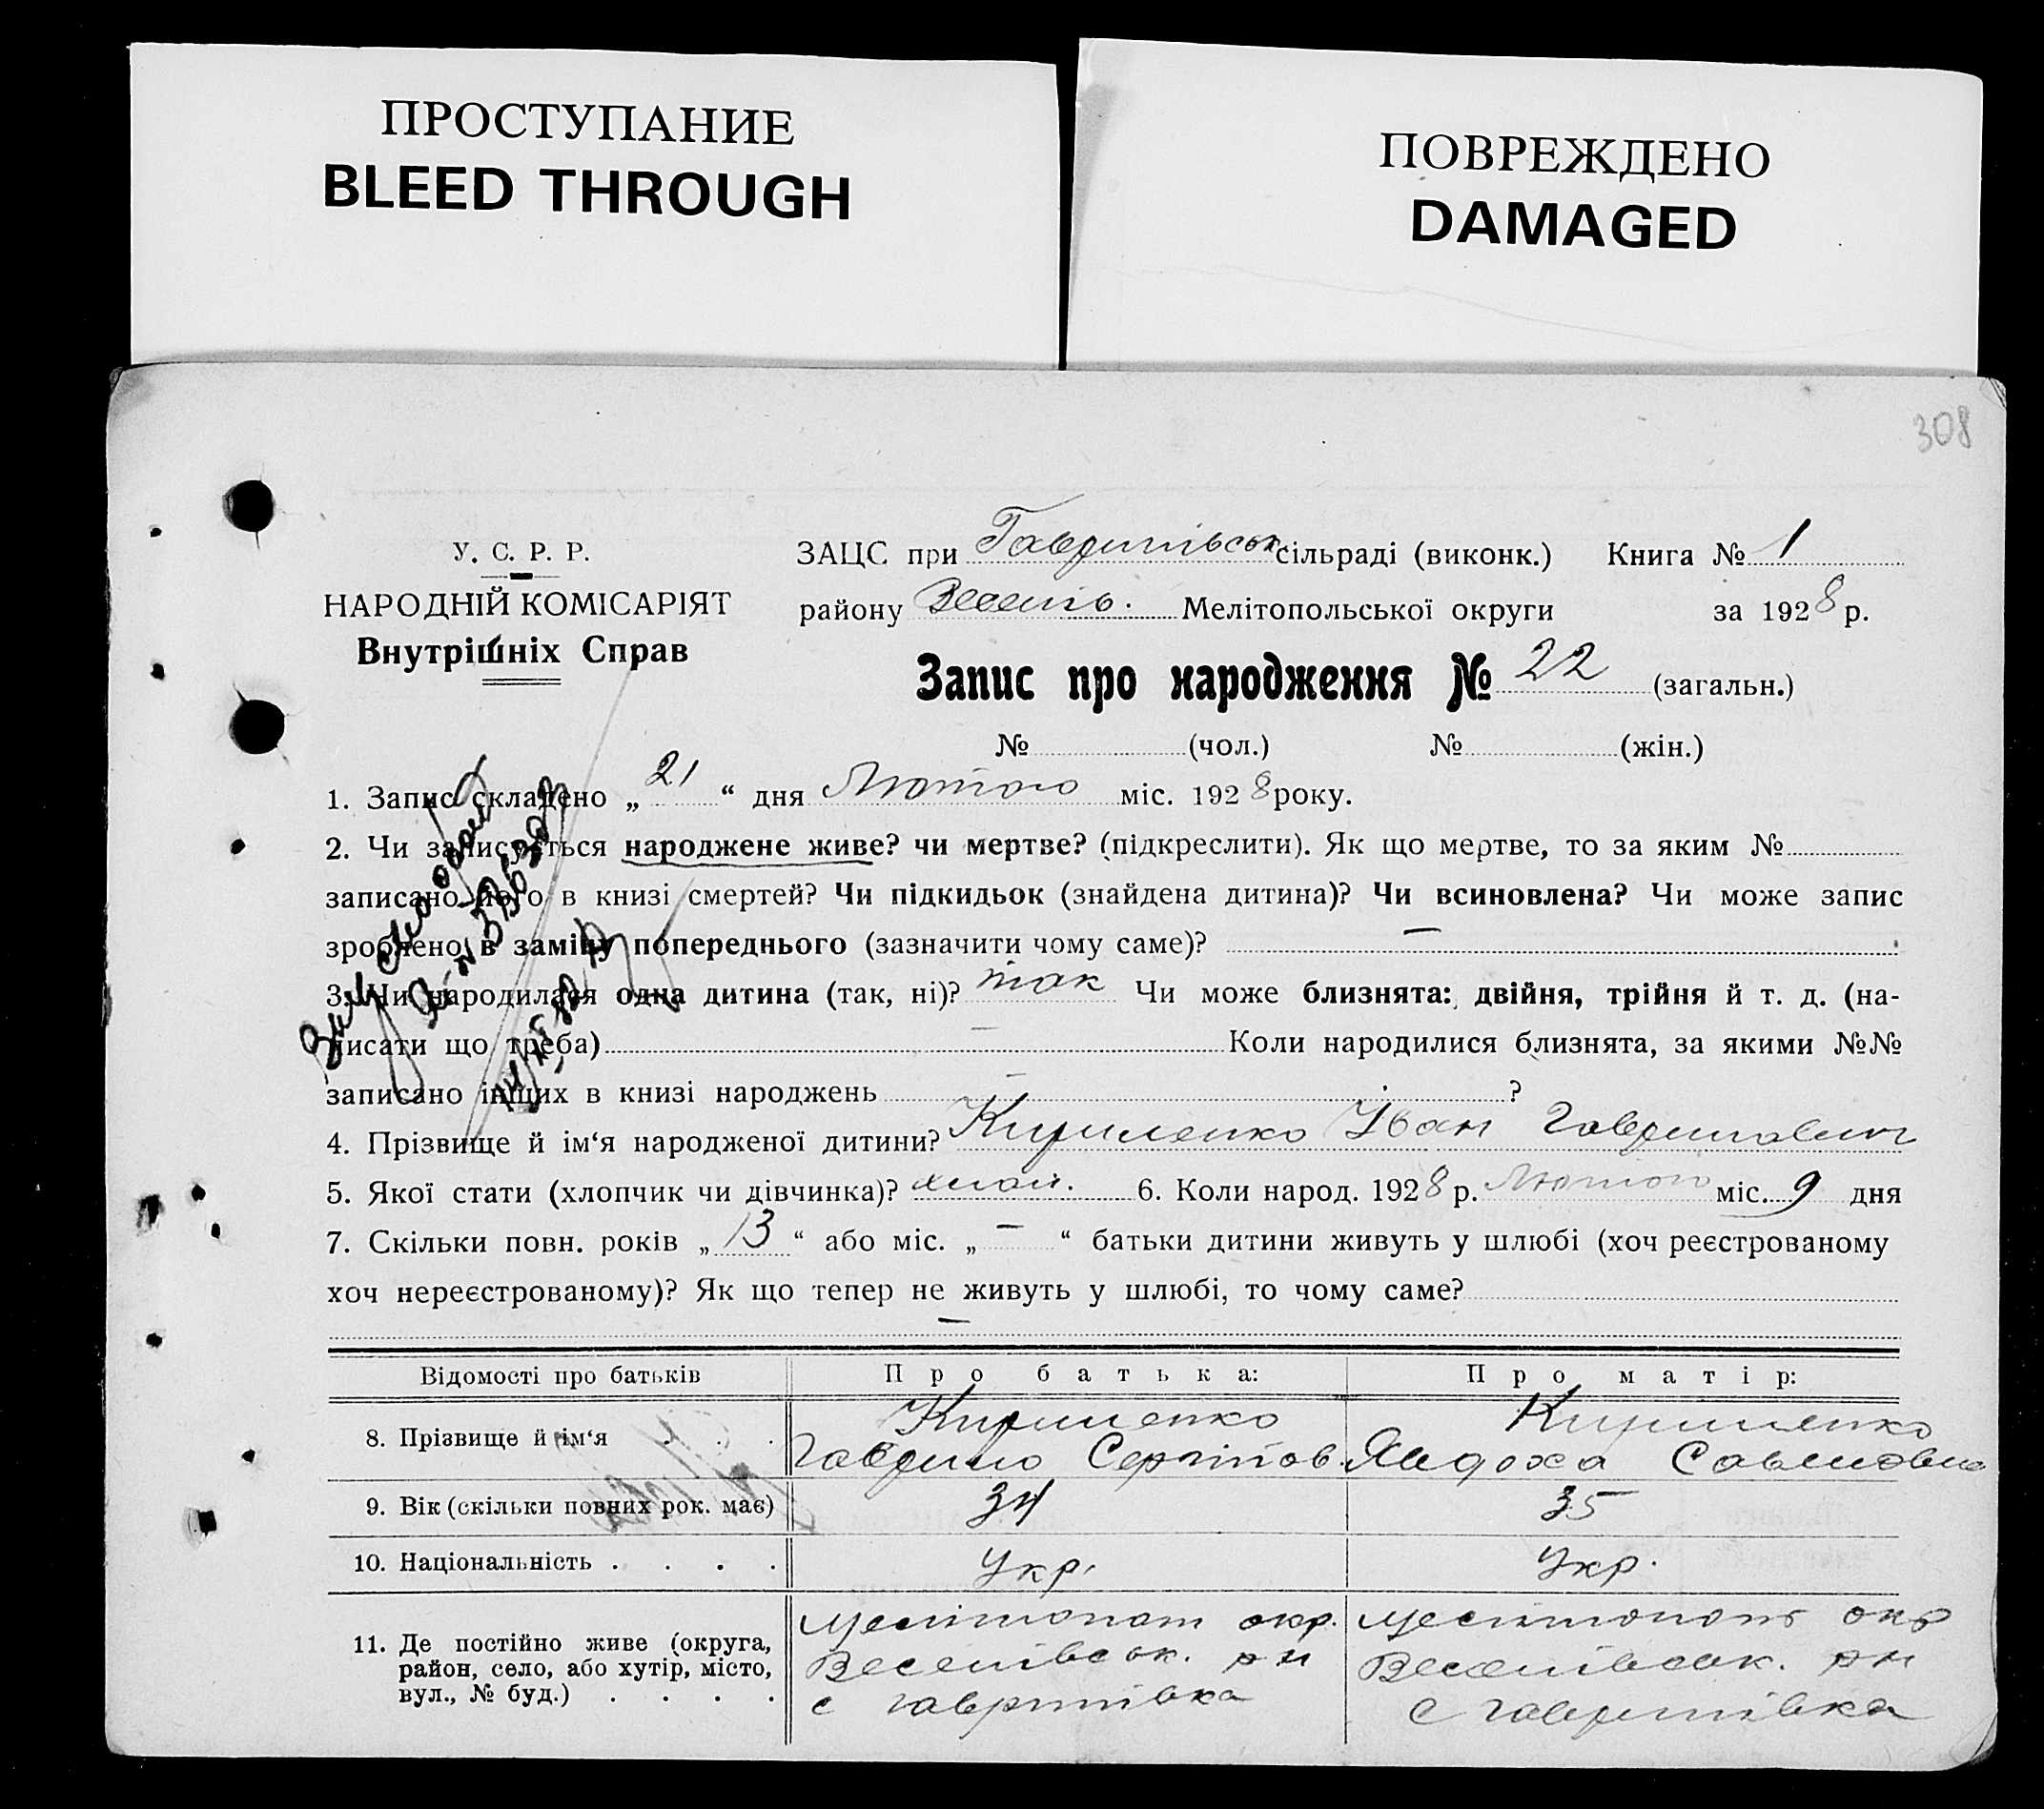 ПРОСТУПАНИЕ
BLEED THROUGH
ПОВРЕЖДЕНО
DAMAGED
308
У. С. Р. Р.
НАРОДНІЙ КОМІСАРІЯТ
Внутрішніх Справ
ЗАЦС при Гаврилівськ сільраді (виконк.) Книга № 1
району Веселів. Мелітопольської округи за 1928 р.
Запис про народження № 22 (загальн.)
№ (чол.) № (жін.)
1. Запис складено „ 21 “ дня Лютого міс. 1928 року.
2. Чи записується народжене живе? чи мертве? (підкреслити). Як що мертве, то за яким №
записано його в книзі смертей? Чи підкидьок (знайдена дитина)? Чи всиновлена? Чи може запис
зроблено в заміну попереднього (зазначити чому саме)? —
3. Чи народилася одна дитина (так, ні)? так Чи може близнята: двійня, трійня й т. д. (на-
писати що треба) — Коли народилися близнята, за якими №№
записано інших в книзі народжень — ?
4. Прізвище й ім‘я народженої дитини? Кириленко Іван Гаврилович
5. Якої стати (хлопчик чи дівчинка)? хлоп. 6. Коли народ. 1928 р. Лютого міс. 9 дня
7. Скільки повн. років „ 13 “ або міс. „ — “ батьки дитини живуть у шлюбі (хоч реєстрованому
хоч нереєстрованому)? Як що тепер не живуть у шлюбі, то чому саме?
—
Відомості про батьків Про батька: Про матір:
8. Прізвище й ім‘я . . . Кириленко Кириленко
Гаврило Сергіїов. Явдоха Савеловна
9. Вік (скільки повних рок. має) 34 35
10. Національність . . . . Укр. Укр.
11. Де постійно живе (округа,
район, село, або хутір, місто,
вул., № буд.) . . . .
Мелітопол окр.
Веселівськ. рн
с Гаврилівка
Мелітополь окр
Веселівськ. рн
с Гаврилівка